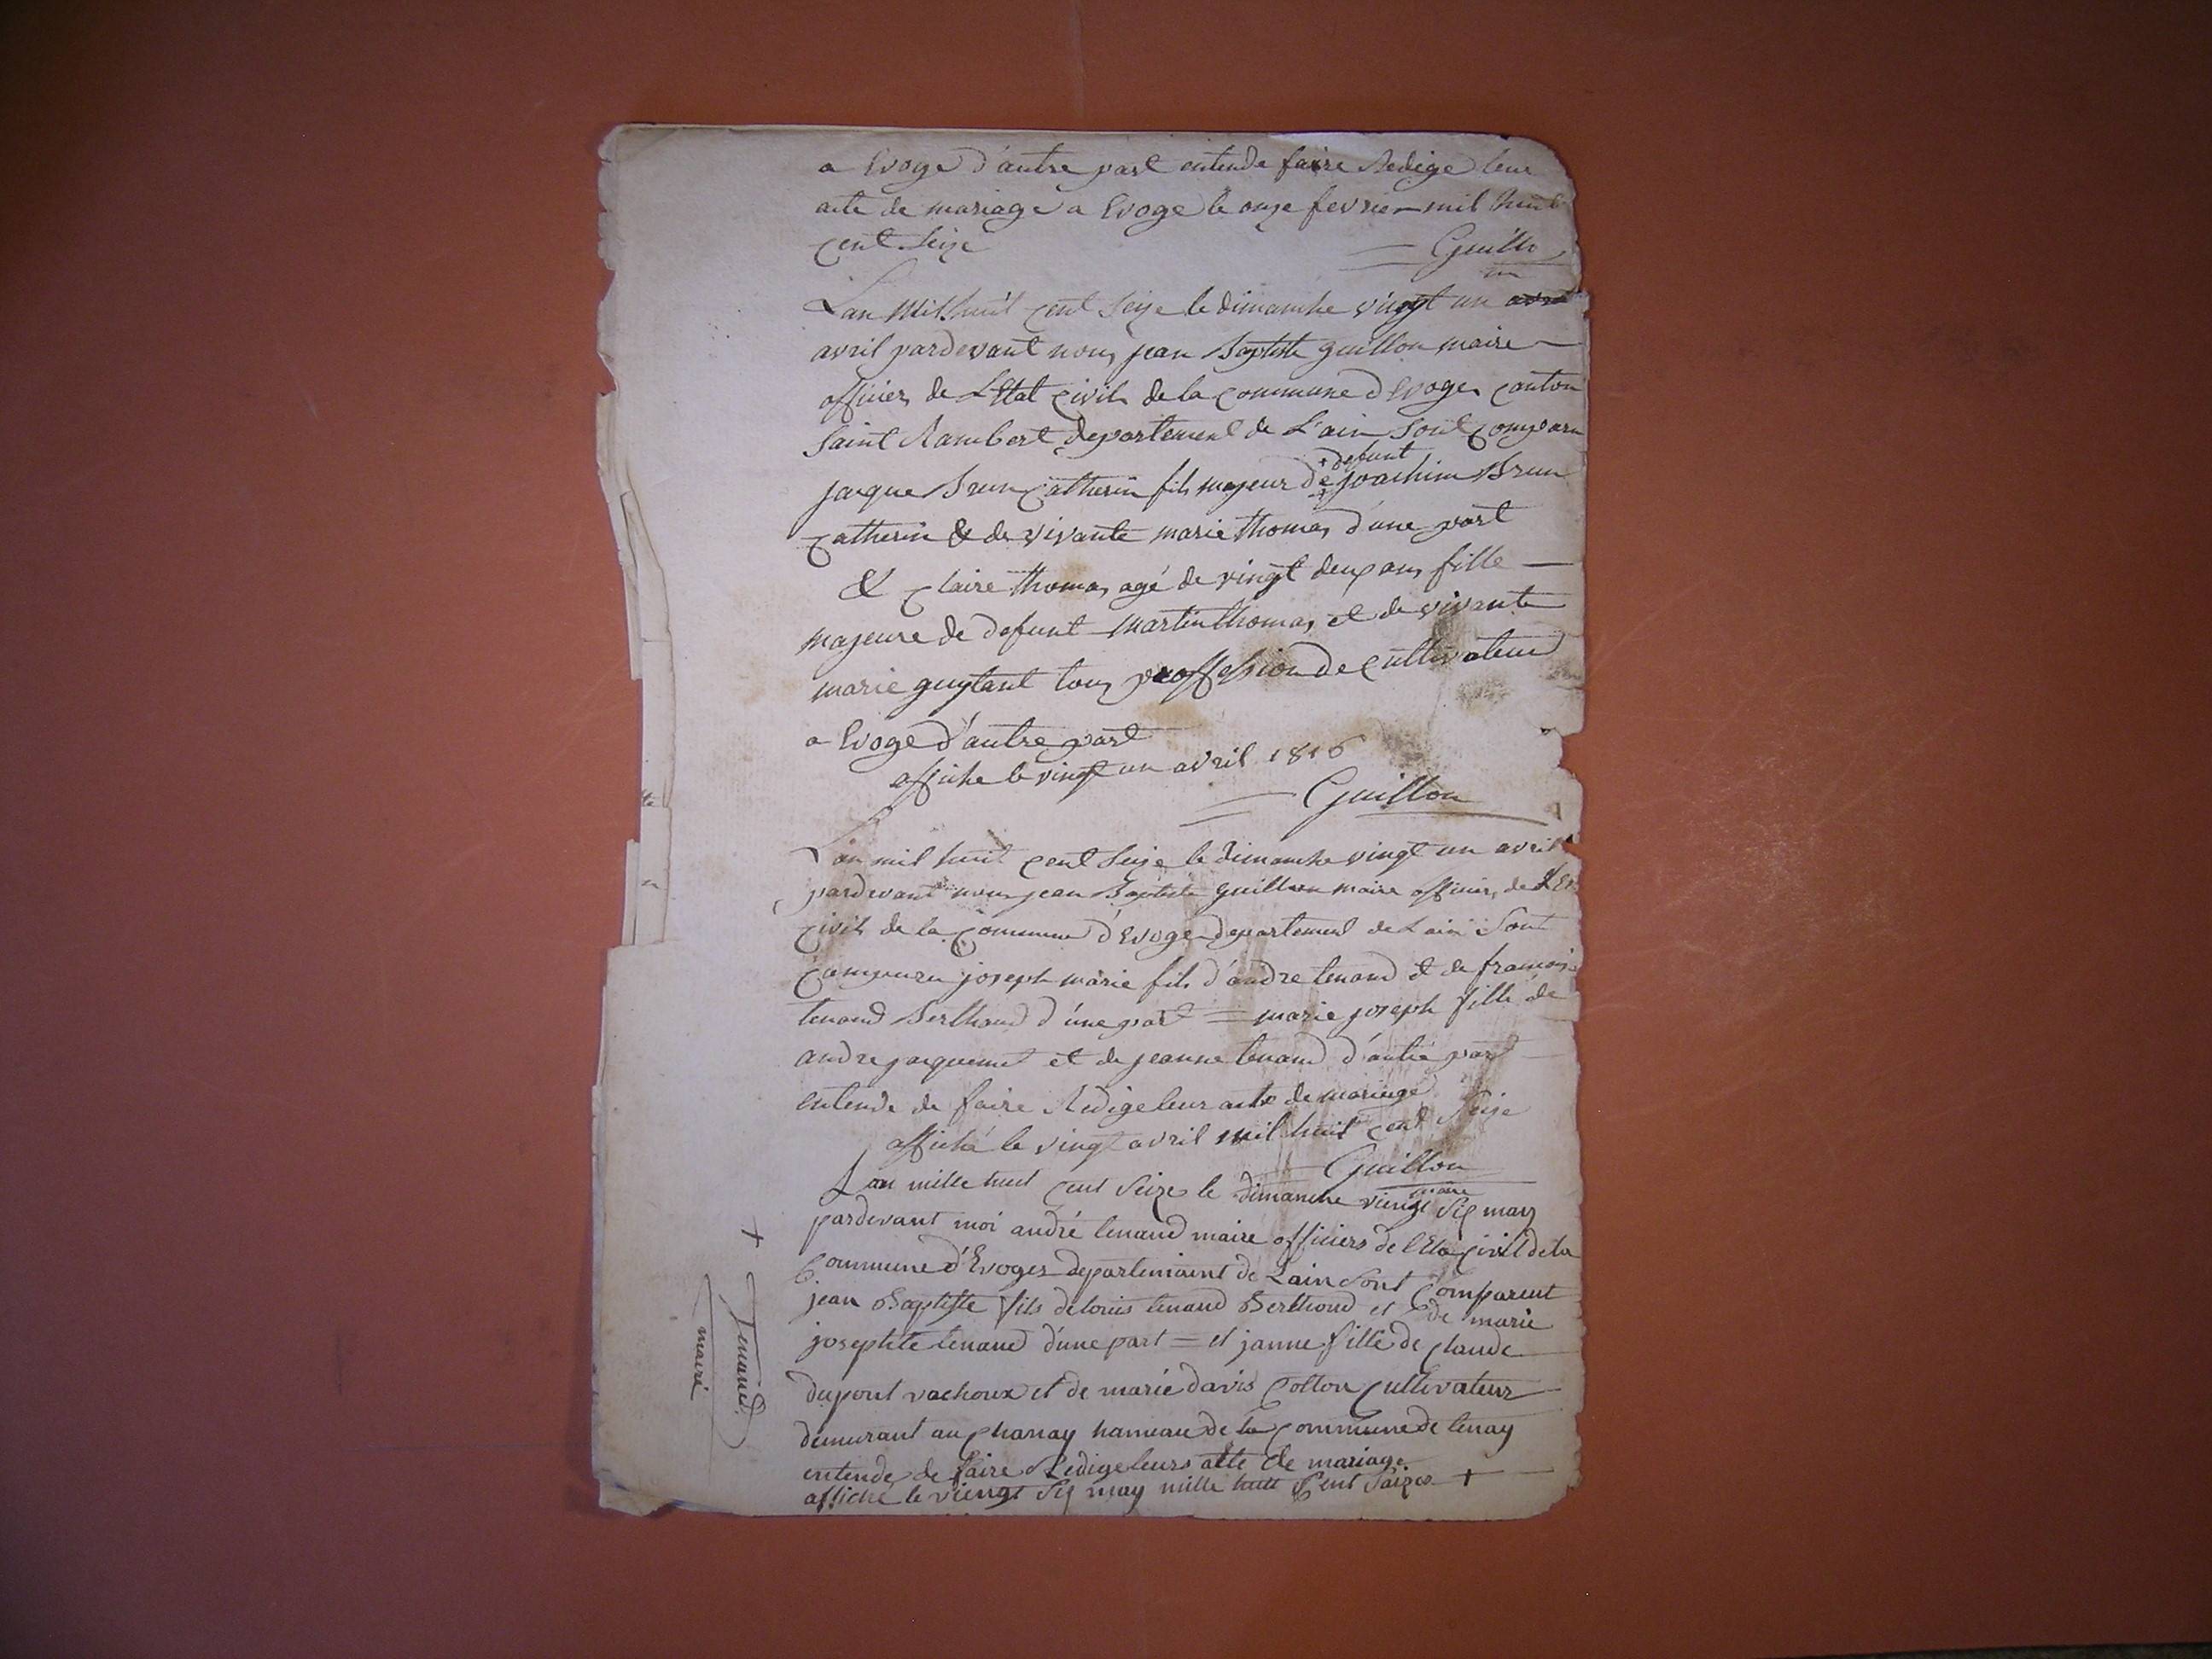 a Evoge d'autre part entende faire Redige leur
acte de mariage a Evoge le onze fevrier mil huit
cent seize Guillon
L'an Mil huit cent seize le dimanche vingt un avril
avril pardevant nous jean Baptiste guillon maire
officier de L'Etat civil de la commune d'Evoges canton
Saint Rambert departement de L'ain Sont comparu
+ defunt
jacque Brun Catherin fils majeur de joachim Brun
Catherin & de vivante marie thomas d'une part
& Claire thomas agé de vingt deux ans fille
majeure de defunt martin thomas et de vivante
marie guytant tous proffession de cultivateur
a Evoge d'autre part
affiche le vingt un avril 1816
Guillon
L'an mil huit cent seize le dimanche vingt un avril
pardevant nous jean Baptiste guillon maire officier de L'Et
civil de la commune d'Evoge departement de Lain Sont
Comparu joseph marie fils d'andre tenand et de francois
tenand Berthoud d'une part = marie joseph fille de
andre jacquemet et de jeanne tenand d'autre part
entende de faire Redige leur acte de mariage
affiché le vingt avril mil huit cent Seize
Guillon
maire
L'an mille huit cent seize le dimanche viengt six may
pardevant moi andré tenand maire officiers de l'Eta civil de la
Commune d'Evoges departemient de Lain Sont Comparent
jean Baptiste fils de louis tenand Berthoud et de marie
josephte tenand d'une part = et janne fille de claude
dupont vachoux et de marie david Cotton Cultivateur
demurant au chanay hameau de la commune de tenay
entende de faire Redige leurs atte de mariage
affiché le viengt six may mille huit Cent Saizes +
+ Tenand
maire